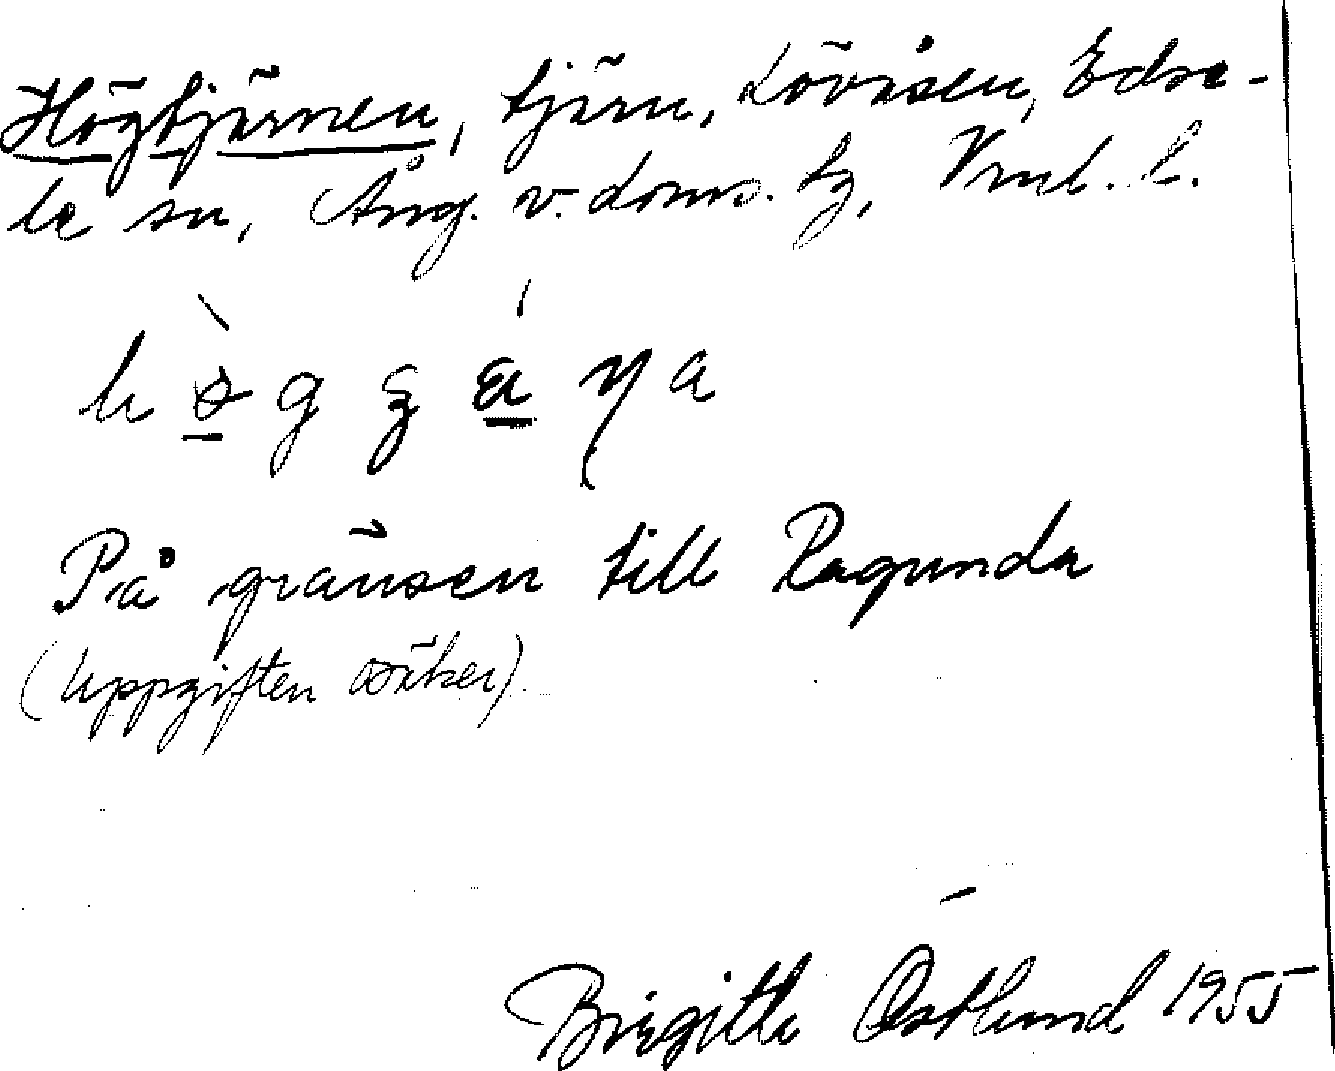 Högtjärnen, tjärn, Lövåsen, Edse-
le sn, Ång. v. doms. tg, Vml. l.
På gränsen till Ragunda
(Uppgiften osäker).
Birgitta Östlund 1955